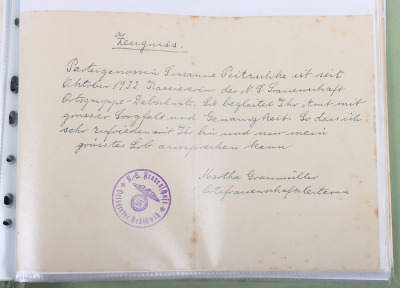 Zeugnis.
Parteigenossin Susanne Peitzschke ist seit
Oktober 1932 Kassiererin der N.S. Frauenschaft
Ortsgruppe-Dabschütz. Sie begleitet Ihr Amt mit
grosser Sorgfalt und Genauigkeit. So dass ich
sehr zufrieden mit Ihr bin und nur mein
grösstes Lob aussprechen kann
Martha Graumüller
Ortsfrauenschaftsleiterin
N.S. Frauenschaft
Ortsgruppe